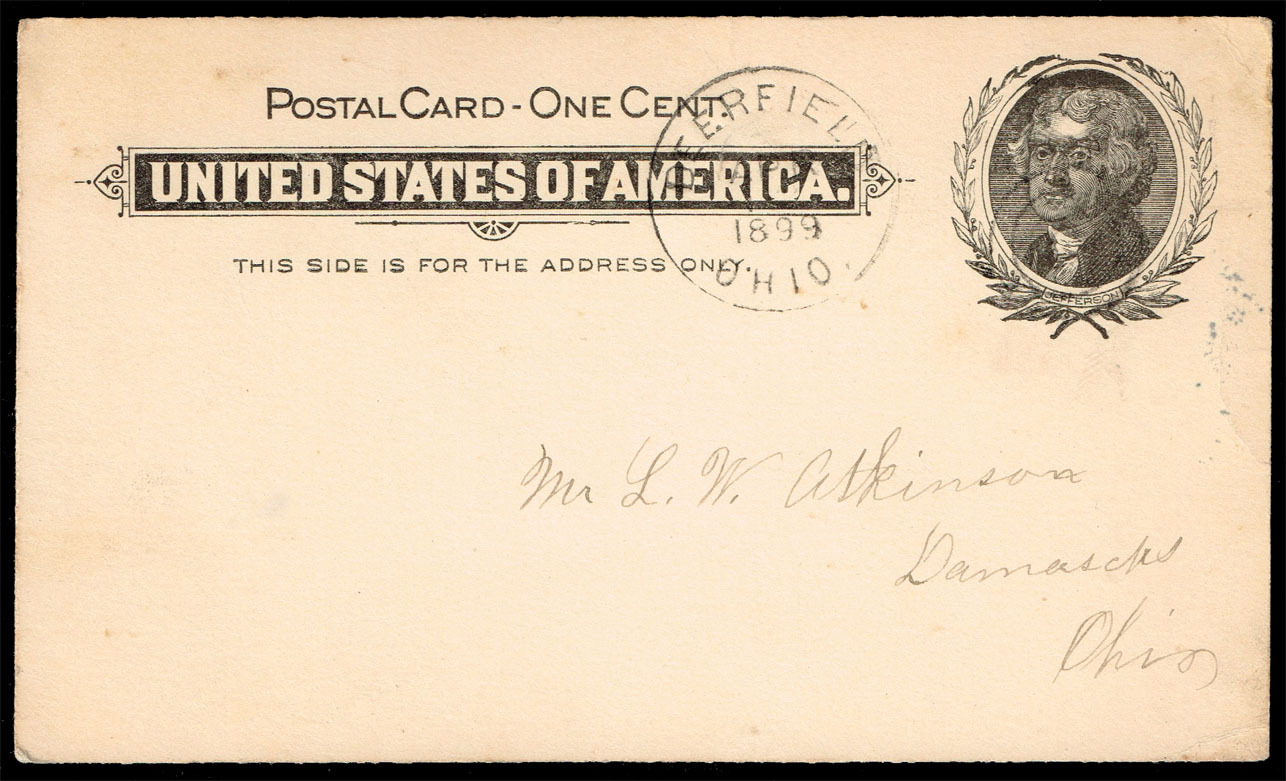 POSTAL CARD - ONE CENT.
UNITED STATES OF AMERICA.
THIS SIDE IS FOR THE ADDRESS ONLY.
DEERFIELD
APR
1899
OHIO.
JEFFERSON
Mr L. W. Atkinson
Damascus
Ohio